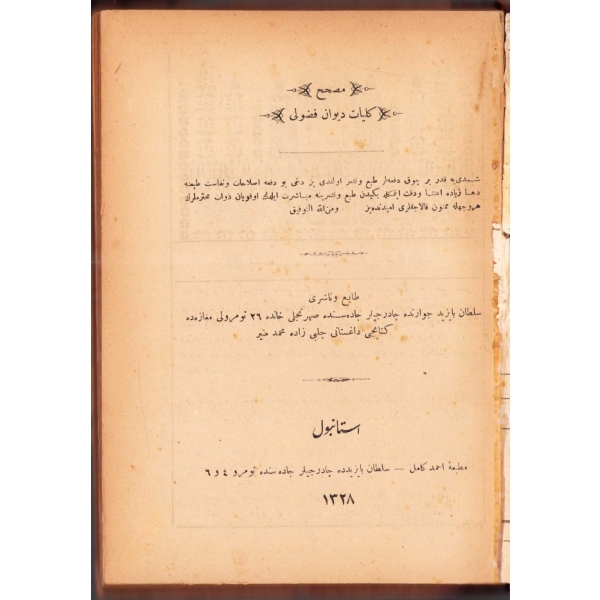 مصحح
كليات ديوان فضولى
شمدى‌يه قدر بر چوق دفعه‌لر طبع ونشر اولندى بز دخى بو دفعه اصلاحات ونفاست طبعنه
دها زياده اعتنا ودقت ايتمكله يكيدن طبع ونشرينه مباشرت ايلدك اوقويان ذوات محترمه‌لرك
هر وجهله ممنون قالاجقلرى اميدنده‌يز ومن الله التوفيق
طابع وناشرى
سلطان بايزيد جوارنده چادرجيلر جاده‌سنده خانده ٢٦ نومرولى مغازه‌ده
كتابجى داغستانى چلبى زاده محمد منير
استانبول
مطبعهٔ احمد كامل — سلطان بايزيدده چادرجيلر جاده‌سنده نومرو ٤ و ٦
١٣٢٨